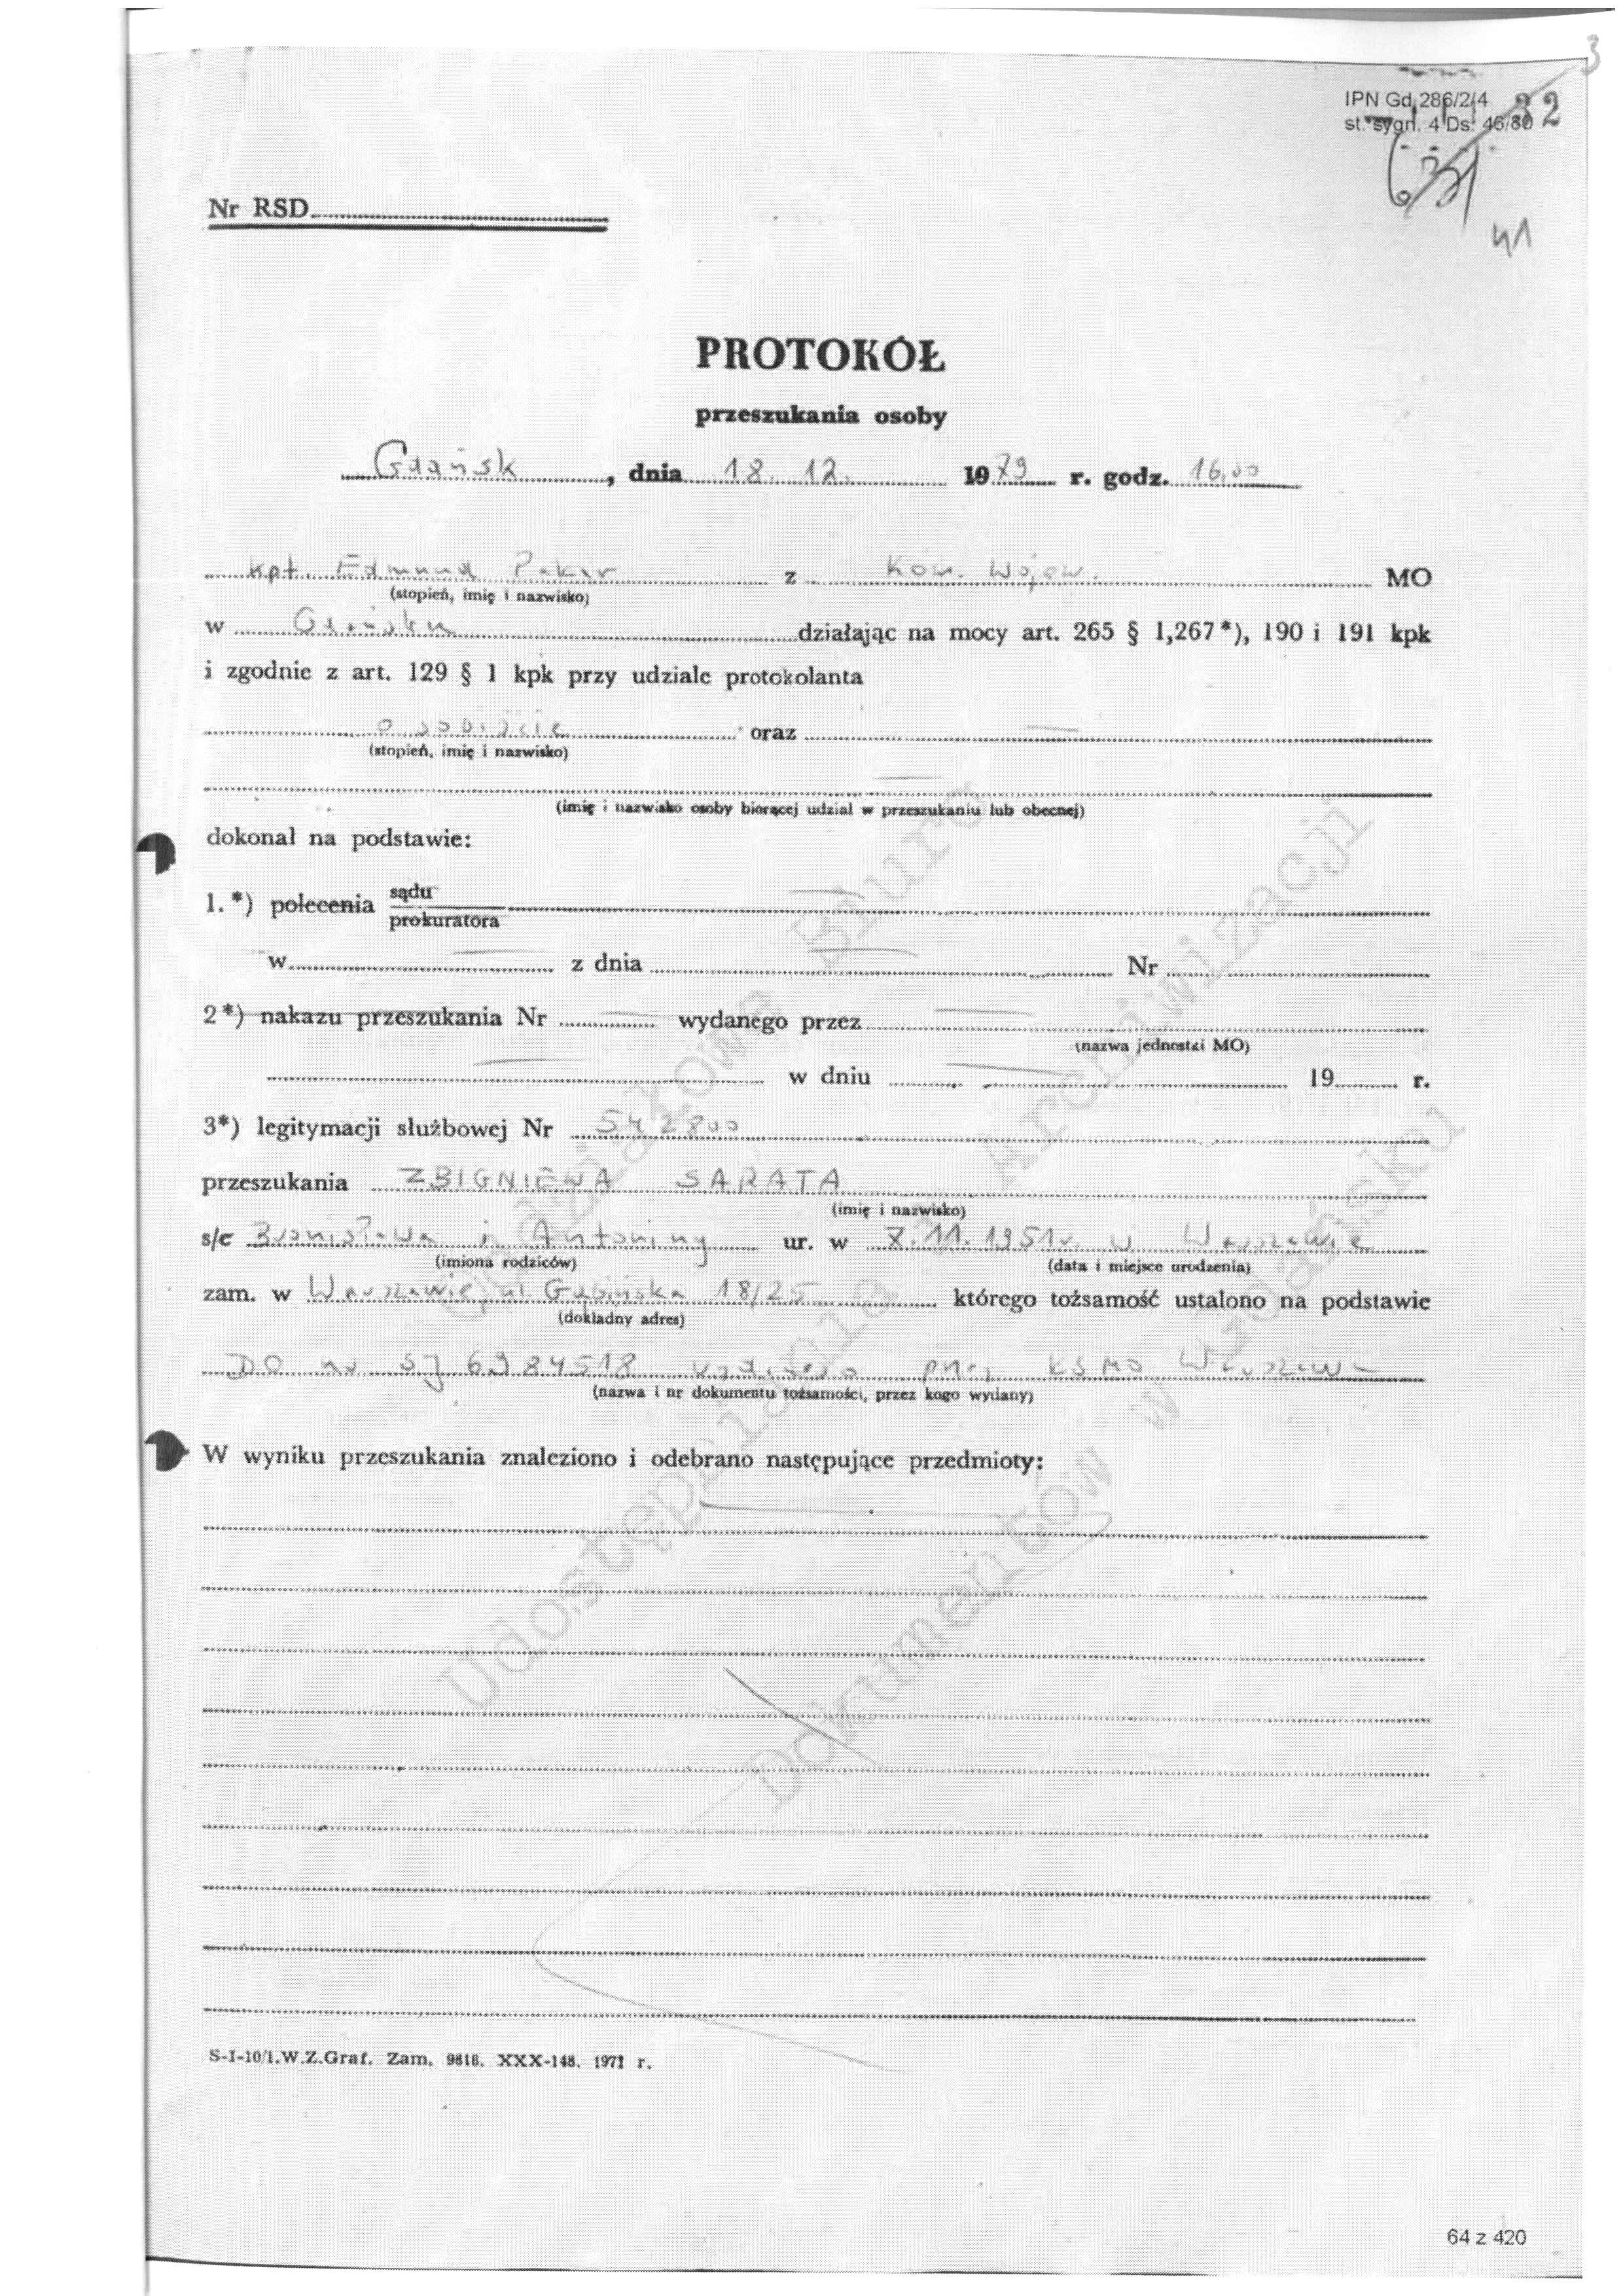 3
IPN Gd 286/2/4 32
st. sygn. 4 Ds. 46/80
41
Nr RSD
PROTOKÓŁ
przeszukania osoby
Gdańsk, dnia 18. 12. 1979 r. godz. 16,00
kpt. Edmund z Kom. Wojew. MO
(stopień, imię i nazwisko)
w Gdańsku działając na mocy art. 265 § 1,267*), 190 i 191 kpk
i zgodnie z art. 129 § 1 kpk przy udziale protokolanta
osobiście oraz —
(stopień, imię i nazwisko)
(imię i nazwisko osoby biorącej udział w przeszukaniu lub obecnej)
dokonał na podstawie:
1.*) polecenia sądu
prokuratora
w z dnia Nr
2*) nakazu przeszukania Nr wydanego przez
(nazwa jednostki MO)
w dniu 19 r.
3*) legitymacji służbowej Nr
przeszukania ZBIGNIEWA SARATA
(imię i nazwisko)
s/c Bronisława i Antoniny ur. w 7.11.1951r. w Warszawie
(imiona rodziców) (data i miejsce urodzenia)
zam. w Warszawie, ul. Gąbińska 18/25 którego tożsamość ustalono na podstawie
(dokładny adres)
DO nr SJ 6984518 wydanego przez KSMO Warszawa
(nazwa i nr dokumentu tożsamości, przez kogo wydany)
W wyniku przeszukania znaleziono i odebrano następujące przedmioty:
S-I-10/1.W.Z.Graf. Zam. 9818. XXX-148. 1971 r.
Oddziałowe Biuro
Udostępniania i Archiwizacji
Dokumentów w Gdańsku
64 z 420